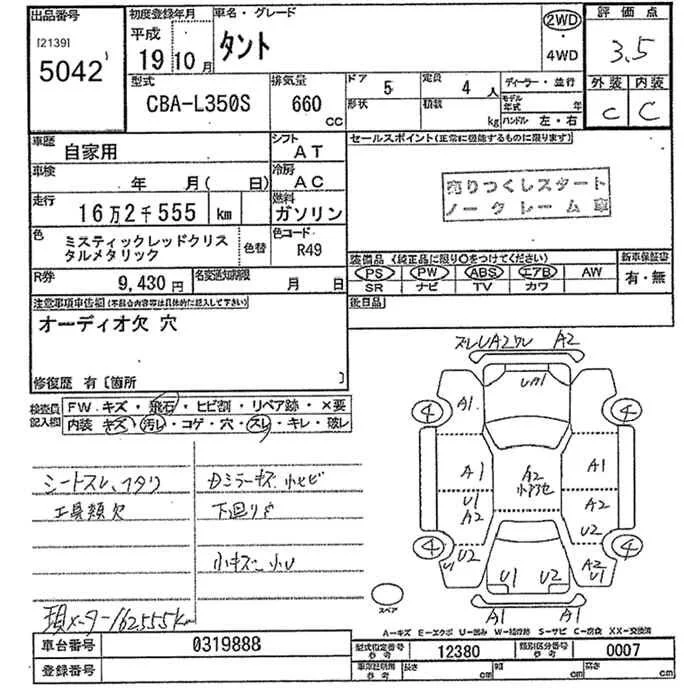 出品番号
[2139]
5042
初度登録年月
平成
19 10月
車名・グレード
タント
2WD
・
4WD
評価点
3.5
外装 内装
C C
型式
CBA-L350S
排気量
660 CC
ドア 5
定員 4人
ディーラー・並行
形状
積載 kg
モデル年式 年
ハンドル 左・右
車歴
自家用
シフト
AT
車検
年 月( 日)
冷房
AC
走行
16万2千555 km
燃料
ガソリン
色
ミスティックレッドクリスタルメタリック
色替
色コード
R49
R券
9,430円
名変通知期限
月 日
セールスポイント(正常に機能するものに限ります)
売りつくしスタート
ノークレーム車
装備品 (純正品に限り○をつけてください)
PS PW ABS エアB AW
SR ナビ TV カワ
新車保証書
有・無
後日品
注意事項申告欄(不具合内容等は具体的に記入して下さい)
オーディオ欠 穴
修復歴 有〔箇所 〕
検査員記入欄
FW キズ・飛石・ヒビ割・リペア跡・×要
内装 キズ・汚レ・コゲ・穴・スレ・キレ・破レ
シートスレ、ヘタリ
工具類欠
Dミラーキズ 小ヒビ
下廻りサ
小キズ 小U
現メーター162555km
A2
A2
A1
4
4
A1
A1
U1
A2
A2
小アクセ
A2
U2
4
4
U1 U2
U1 U2
A2
U1
A1 A1
スペア
A−キズ E−エクボ U−凹み W−補修跡 S−サビ C−腐食 XX−交換済
車台番号
0319888
登録番号
型式指定番号 参考
12380
類別区分番号 参考
0007
車庫証明用 参考
長さ cm
幅 cm
高さ cm